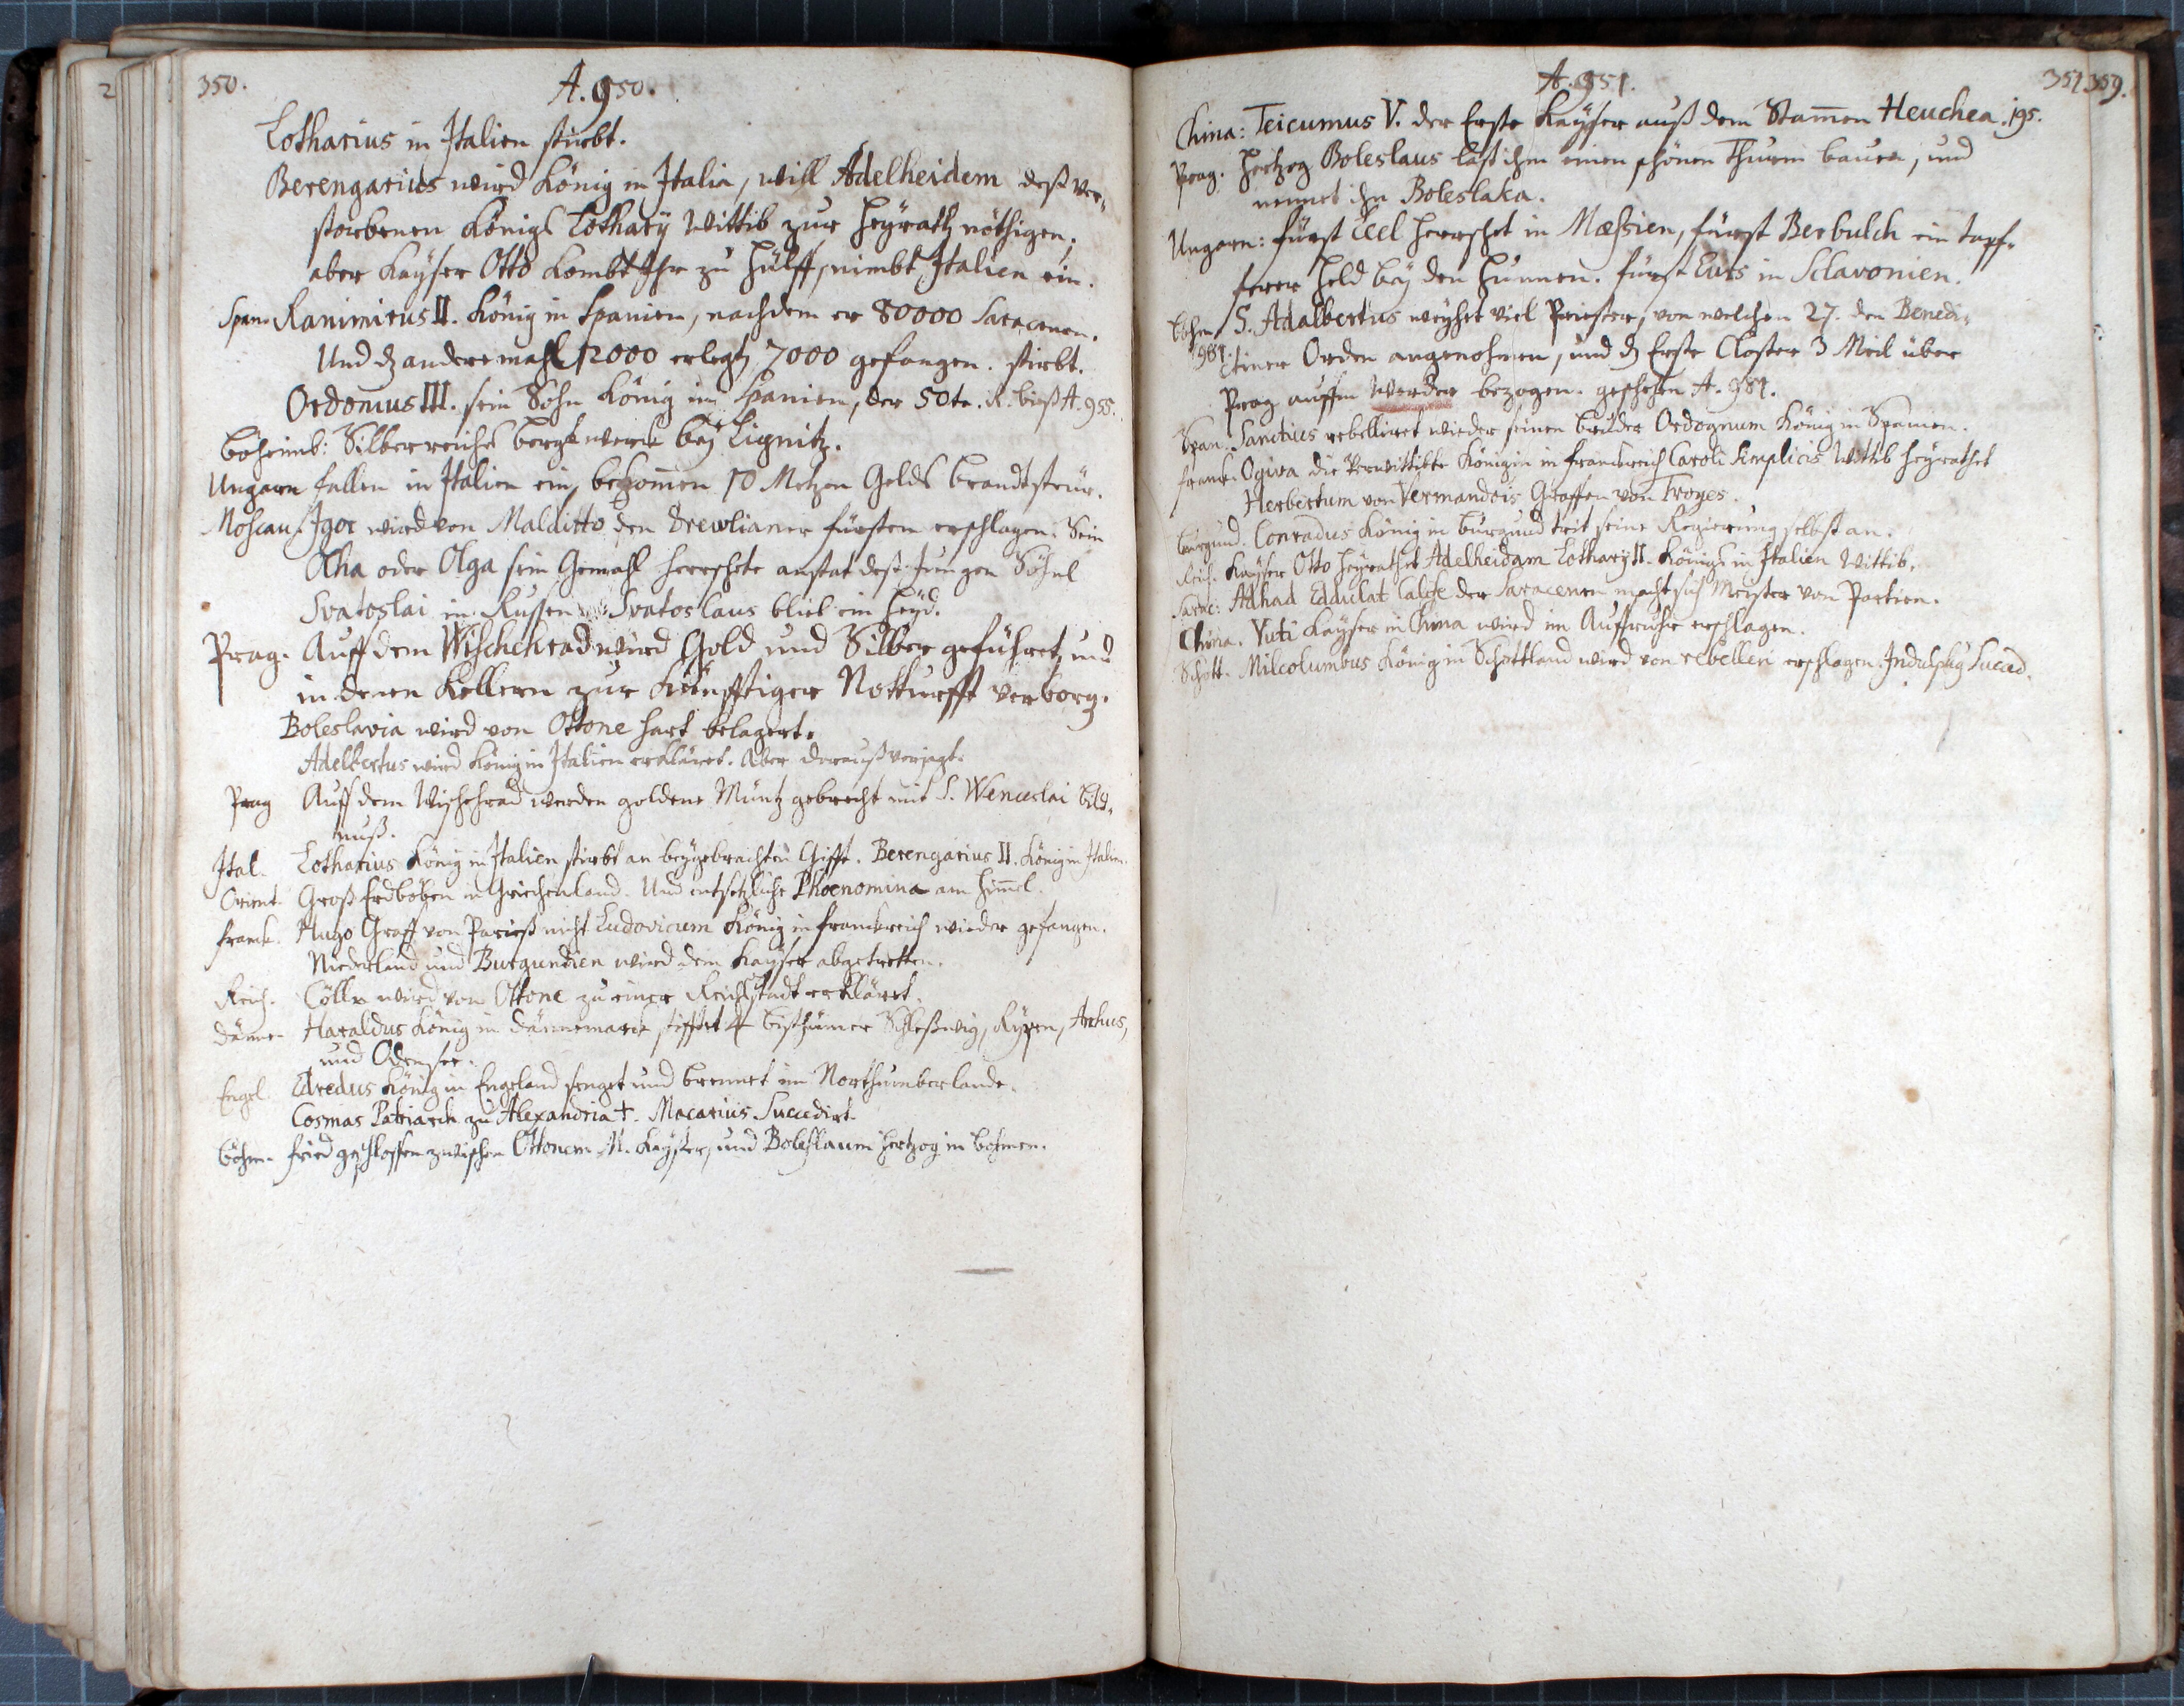 2
350.
A. 950.
Lotharius in Italien stirbt.
Berengarius wird König in Italia, will Adelheidem deß ver-
storbenen Königs Lotharÿ Wittib zur Heyrath nöthigen.
aber Kayser Otto kombt Ihr zu Hülff, nimbt Italien ein.
Span. Ranimirus II. König in Spanien, nachdem er 80000 Saracenen.
Und dz andere mahl 12000 erlegt, 7000 gefangen. stirbt.
Ordonius III. sein Sohn König in Spanien, der 50te. R. bieß A. 955.
Böheimb: Silberreiches bergkwerck beÿ Lignitz.
Ungarn fallen in Italien ein, bekomen 10 Metzen Gelds brandtsteür.
Moscau. Igor wird von Malditto den Drewlianer fürsten erschlagen. Sein
Olha oder Olga sein Gemahl herrschete anstat deß Jungen Söhnl
Svatoslai in Russen Svatoslaus blieb ein Heyd.
Prag. Auff dem Wischehrad wird Gold und Silber geführet, und
in denen Kellern zur künfftiger Notturfft verborg.
Boleslavia wird von Ottone hart belagert.
Adelbertus wird König in Italien erkläret. Aber darauß verjagt.
Prag Auff dem Wischehrad werden goldene Müntz gebrecht mit S. Wenceslai Bild-
nuß.
Ital. Lotharius König in Italien stirbt an beygebrachten Gifft. Berengarius II. König in Italien.
Orient. Groß Erdboben in Griechenland. Und entsetzliche Phoenomina am Himel.
Franck. Hugo Graff von Parieß nicht Ludovicum König in Franckreich wieder gefangen.
Niederland und Burgundien wird dem Kayser abgetretten.
Reich. Cölln wird von Ottone zu einer Reichsstadt erkläret.
Dänne. Haraldus König in Dännemarck stifftet 4 bisthümer Schleßwig, Rypen, Arhus,
und Odensee.
Engel. Edredus König in Engeland senget und brennet im Northumberlande.
Cosmas Patriarch zu Alexandria +. Macarius Succedirt.
Böhm. Fried geschlossen zwischen Ottonem M. Kayser, und Boleslaum Hertzog in Böhmen.
A. 951.
351 359.
China: Teicumus V. der Erste Kayser auß dem Stamen Heuchea. 195.
Prag. Hertzog Boleslaus last ihm einen schönen Thurm bauen, und
nennet ihn Boleslaka.
Ungarn: fürst Leel herrschet in Mæssien, fürst Berbulch ein tapf-
ferer Held beÿ den Hunnen. fürst Eurs in Sclavonien.
Böhm. S. Adalbertus weyhet viel Priester, von welchen 27. den Benedi-
981. ctiner Orden angenohmen, und dz Erste Closter 3 Meil über
Prag auffm Werder bezogen. geschehen A. 981.
Span. Sanctius rebelliret wieder seinen bruder Ordognum König in Spanien.
Franck. Ogiva die Verwittibte Königin in Franckreich Caroli Simplicis Wittib heyrathet
Herbertum von Vermandois Graffen von Troyes.
Burgund. Conradus König in Burgund trit seine Regierung selbst an.
Reich. Kayser Otto heyrathet Adelheidam Lotharÿ II. Königs in Italien Wittib.
Sarac: Adhad Eddulat Calife der Saracenen macht sich Meister von Partien.
China. Yuti Kayser in China wird im Auffruhr erschlagen.
Schott. Milcolumbus König in Schottland wird von rebellen erschlagen. Indulphus Succed.